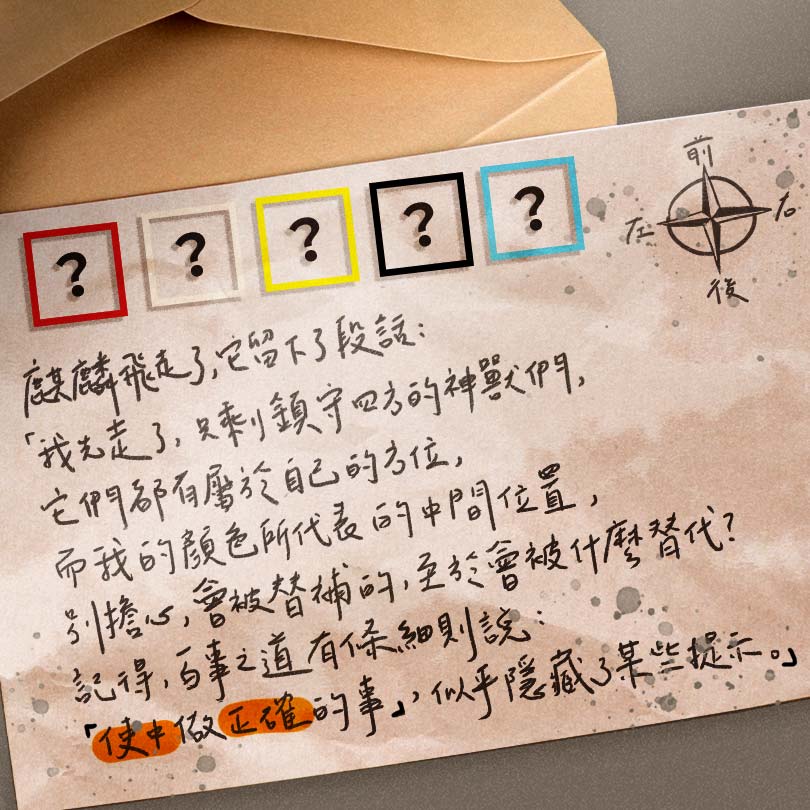 前
左 右
後
? ? ? ? ?
麒麟飛走了,它留下了段話:
「我先走了,只剩鎮守四方的神獸們,
它們都有屬於自己的方位,
而我的顏色所代表的中間位置,
別擔心,會被替補的,至於會被什麼替代?
記得,百事之道有條細則說:
「使中做正確的事」,似乎隱藏了某些提示。」